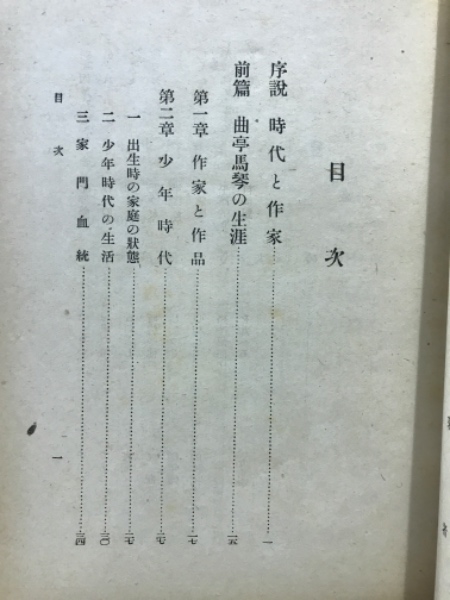 目次
序説 時代と作家…一
前篇 曲亭馬琴の生涯…一五
第一章 作家と作品…一七
第二章 少年時代…二七
一 出生時の家庭の狀態…二七
二 少年時代の生活…三〇
三 家門血統…三四
目次 一